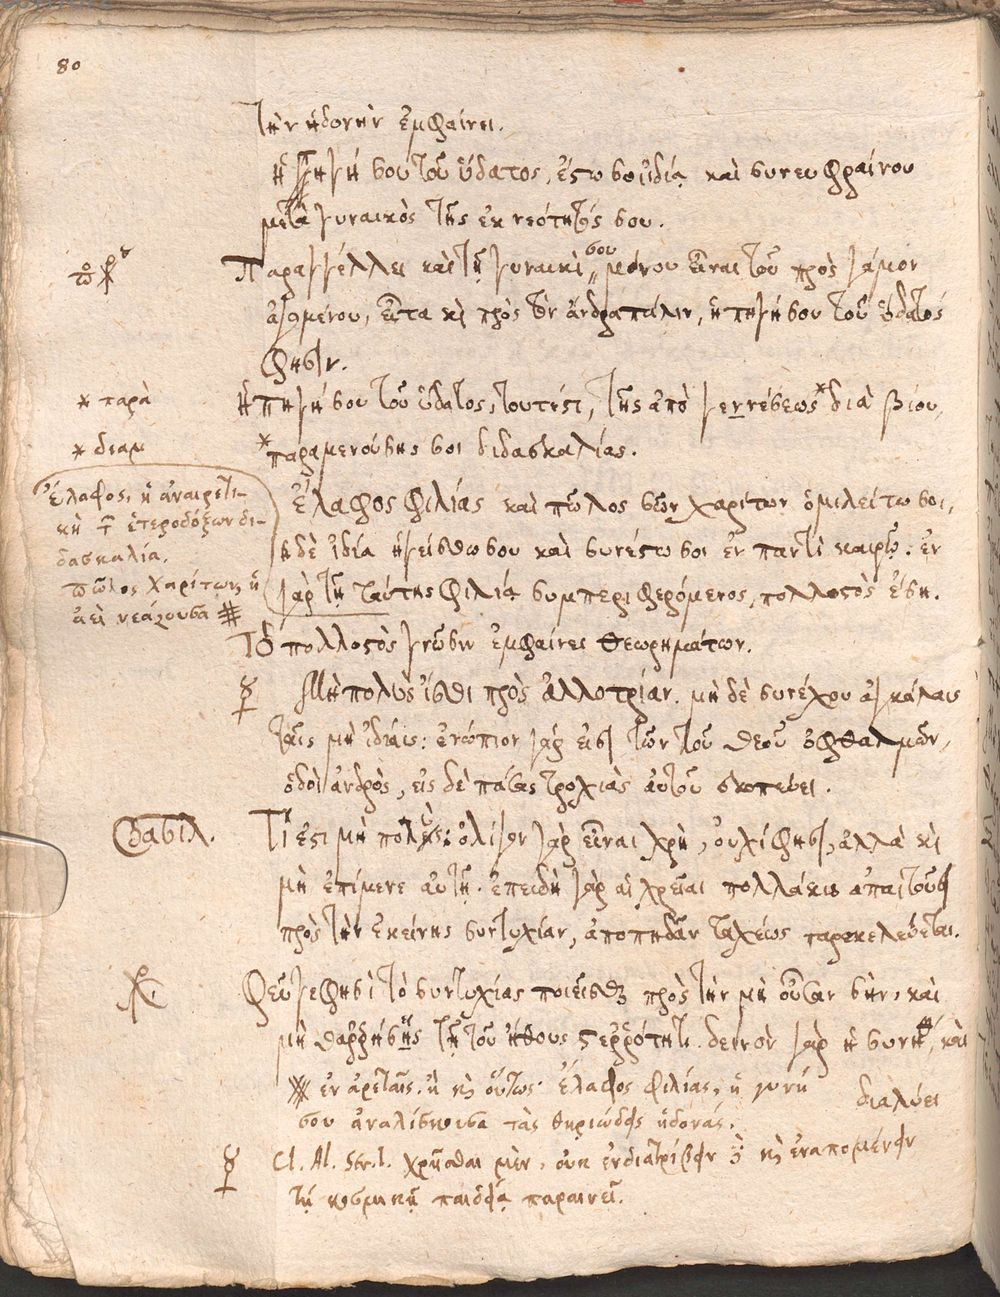 80
τὴν ἡδονὴν ἐμφαίνει.
ἡ πηγή σου τοῦ ὕδατος, ἔστω σοι ἰδία καὶ συνευφραίνου
μετὰ γυναικὸς τῆς ἐκ νεότητός σου.
Παραγγέλλει καὶ τῇ γυναικὶ σου μόνου εἶναι τοῦ πρὸς γάμον
ἀγομένου, εἶτα κὶ πρὸς τὸν ἄνδρα πάλιν, ἡ πηγή σου τοῦ ὕδατός
φησιν.
* παρὰ
Ἡ πηγή σου τοῦ ὕδατος, τουτέστι, τῆς ἀπὸ γεννέσεως * διὰ βίου,
* δεαμ
* παραμενούσης σοι διδασκαλίας.
Ἔλαφος, ἡ ἀναιρετι-
κὴ τ ἑτεροδόξων δι-
δασκαλία.
πῶλος χαρίτων, ἡ
ἀεὶ νεάζουσα
ἔλαφος φιλίας καὶ πῶλος σῶν χαρίτων ὁμιλείτω σοι,
ἡ δὲ ἰδία ἡγείσθω σου καὶ συνέστω σοι ἐν παντὶ καιρῷ. ἐν
γὰρ τῇ ταύτης φιλίᾳ συμπεριφερόμενος, πολλοστὸς ἔσῃ.
Τὸ πολλοστὸς γνῶσιν ἐμφαίνει θεωρημάτων.
Μὴ πολὺς ἴσθι πρὸς ἀλλοτρίαν. μὴ δὲ συνέχου ἀγκάλαις
ταῖς μὴ ἰδίαις: ἐνώπιον γάρ εἰσι τῶν τοῦ θεοῦ ὀφθαλμῶν,
ὁδοὶ ἀνδρός, εἰς δὲ πάσας τροχιὰς αὐτοῦ σκοπεύει.
Βασιλ.
Τί ἐστι μὴ πολὺς; ὀλίγον γὰρ εἶναι χρή, οὐχί φησι, ἀλλὰ κὶ
μὴ ἐπίμενε αὐτῇ. ἐπειδὴ γὰρ αἱ χρεῖαι πολλάκις ἀπαιτοῦσι
πρὸς τὴν ἐκείνης συντυχίαν, ἀποπηδᾶν ταχέως παρακελεύεται.
Φεῦγε φησὶ τὸ συντυχίας ποιεῖσθαι πρὸς τὴν μὴ οὖσαν σήν, καὶ
μὴ θαῤῥήσῃς τῇ τοῦ ἤθους στεῤῥότητι. δεινὸν γὰρ ἡ συνη, καὶ
διαλύει
ἐν ἀρεταῖς. ἢ κὶ οὕτως· ἔλαφος φιλίας, ἡ γυνή
σου ἀναλίσκουσα τὰς θηριώδεις ἡδονάς.
Cl. Al. Str. 1. χρῆσθαι μὲν, οὐκ ἐνδιατρίβειν κὶ ἐναπομένειν
τῇ κοσμικῇ παιδείᾳ παραινεῖ.